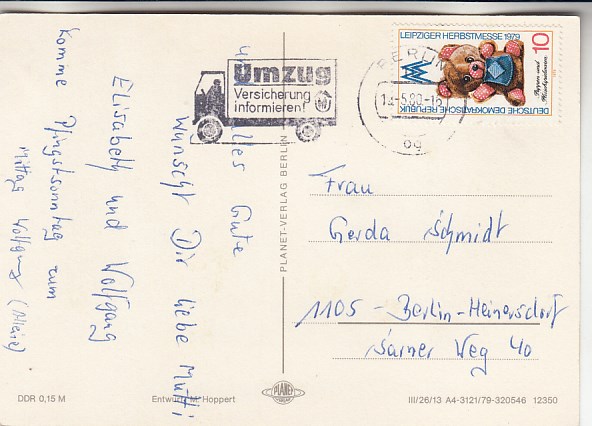 und alles Gute
wünscht Dir liebe Mutti
Elisabeth und Wolfgang
Komme Pfingstsonntag zum
Mittag Wolfgang
Umzug
Versicherung
informieren!
BERLIN
-5.80-
LEIPZIGER HERBSTMESSE 1979
10
Puppen und
DEUTSCHE DEMOKRATISCHE REPUBLIK
Frau
Gerda Schmidt
1105 - Berlin-Heinersdorf
Sarner Weg 40
PLANET-VERLAG BERLIN
DDR 0,15 M
Entwurf: M. Hoppert
PLANET
III/26/13 A4-3121/79-320546 12350